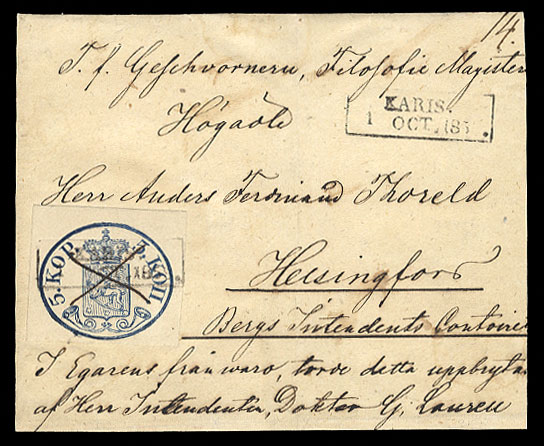 14.
T. f. Geschvornern, Filosofie Magistern
Högädle
KARIS.
1 OCT. 185
Herr Anders Ferdinand Thoreld
5. KOP. 5. КОП
Helsingfors
Bergs Intendents Contoiret
I Egarens frånvaro, torde detta uppbrytas
af Herr Intendenten, Doktor G. Laurell